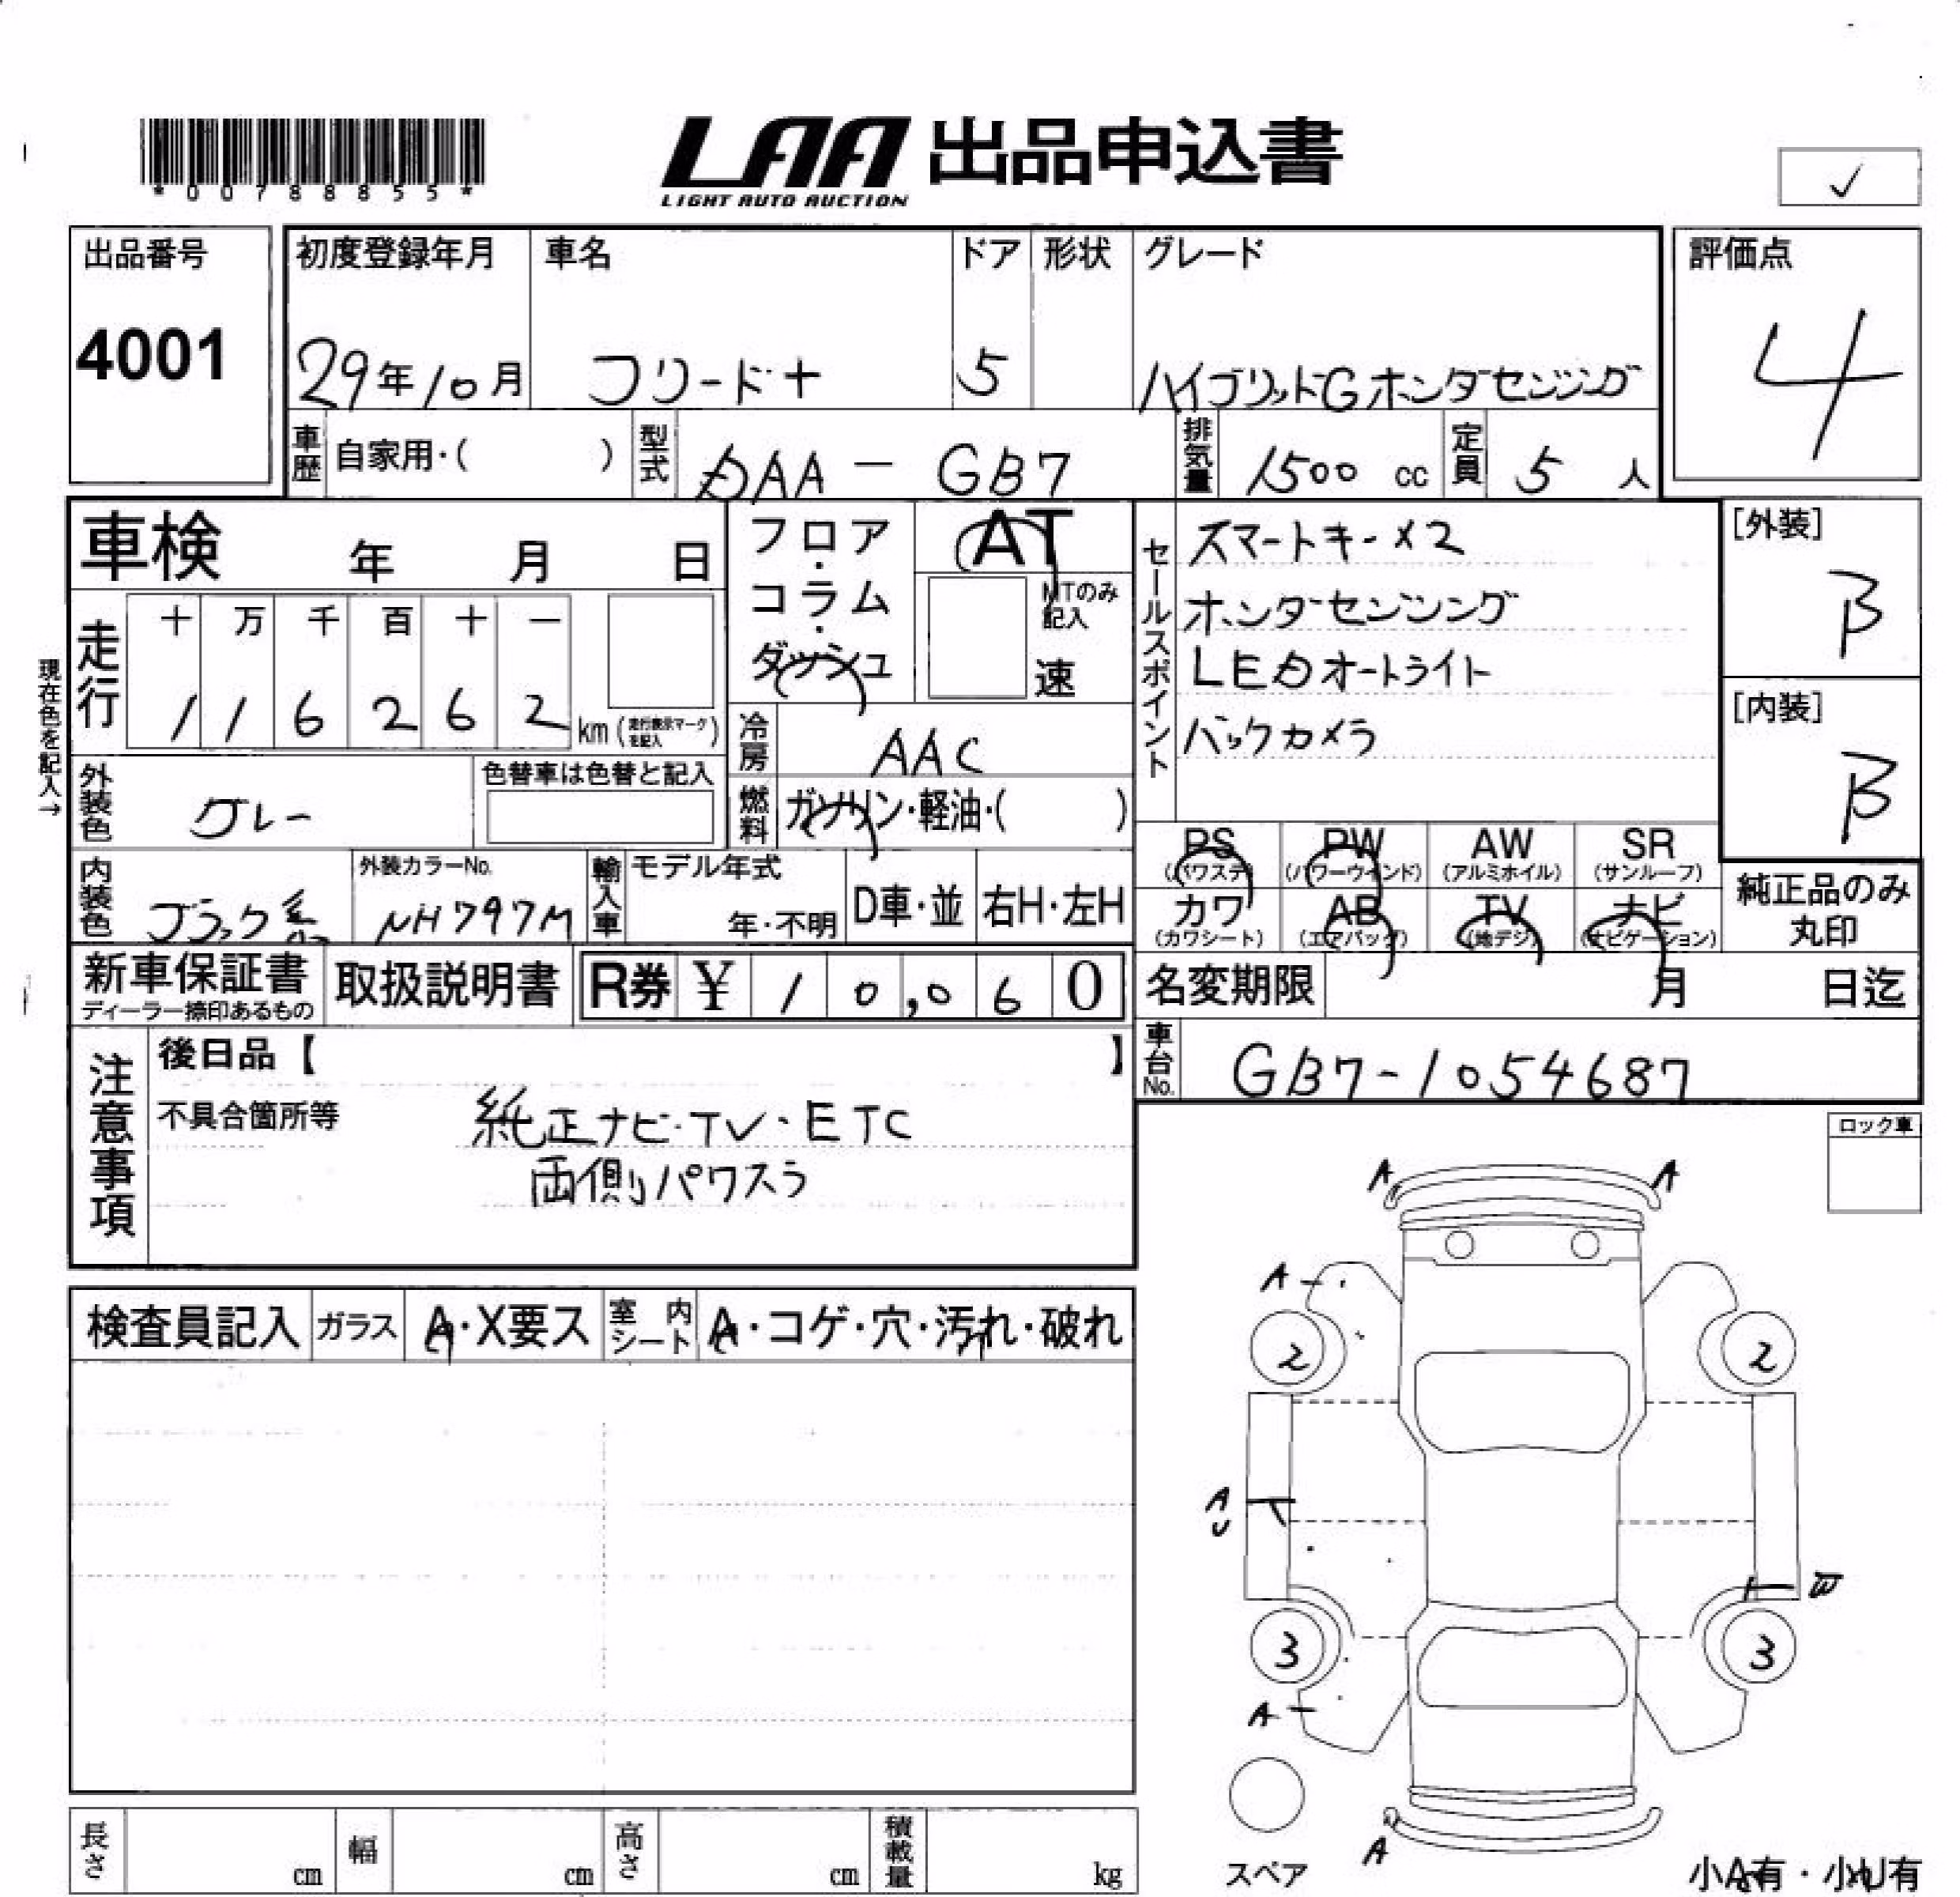 *00788855*
LAA 出品申込書
LIGHT AUTO AUCTION
✓
出品番号
4001
初度登録年月
29年10月
車名
フリード+
ドア
5
形状
グレード
ハイブリットGホンダセンシング
評価点
4
車歴
自家用・( )
型式
DAA-GB7
排気量
1500 cc
定員
5 人
車検 年 月 日
フロア・コラム・ダッシュ
AT
MTのみ記入
速
セールスポイント
スマートキー×2
ホンダセンシング
LEDオートライト
バックカメラ
[外装]
B
[内装]
B
現在色を記入→
走行
十 万 千 百 十 一
1 1 6 2 6 2 km (走行表示マークを記入)
冷房
AAC
外装色
グレー
色替車は色替と記入
燃料
ガソリン・軽油・( )
PS
(パワステ)
PW
(パワーウィンド)
AW
(アルミホイル)
SR
(サンルーフ)
カワ
(カワシート)
AB
(エアバッグ)
TV
(地デジ)
ナビ
(ナビゲーション)
純正品のみ
丸印
内装色
ブラック系
外装カラーNo.
NH797M
輸入車
モデル年式
年・不明
D車・並
右H・左H
新車保証書
ディーラー捺印あるもの
取扱説明書
R券 ¥ 10,060
名変期限 月 日迄
車台No.
GB7-1054687
注意事項
後日品【 】
不具合箇所等
純正ナビ・TV・ETC
両側パワスラ
ロック車
A A
A
2 2
A
U
W
3 3
A
A
スペア
小A有・小U有
検査員記入
ガラス
A・X要ス
室内シート
A・コゲ・穴・汚れ・破れ
長さ cm
幅 cm
高さ cm
積載量 kg